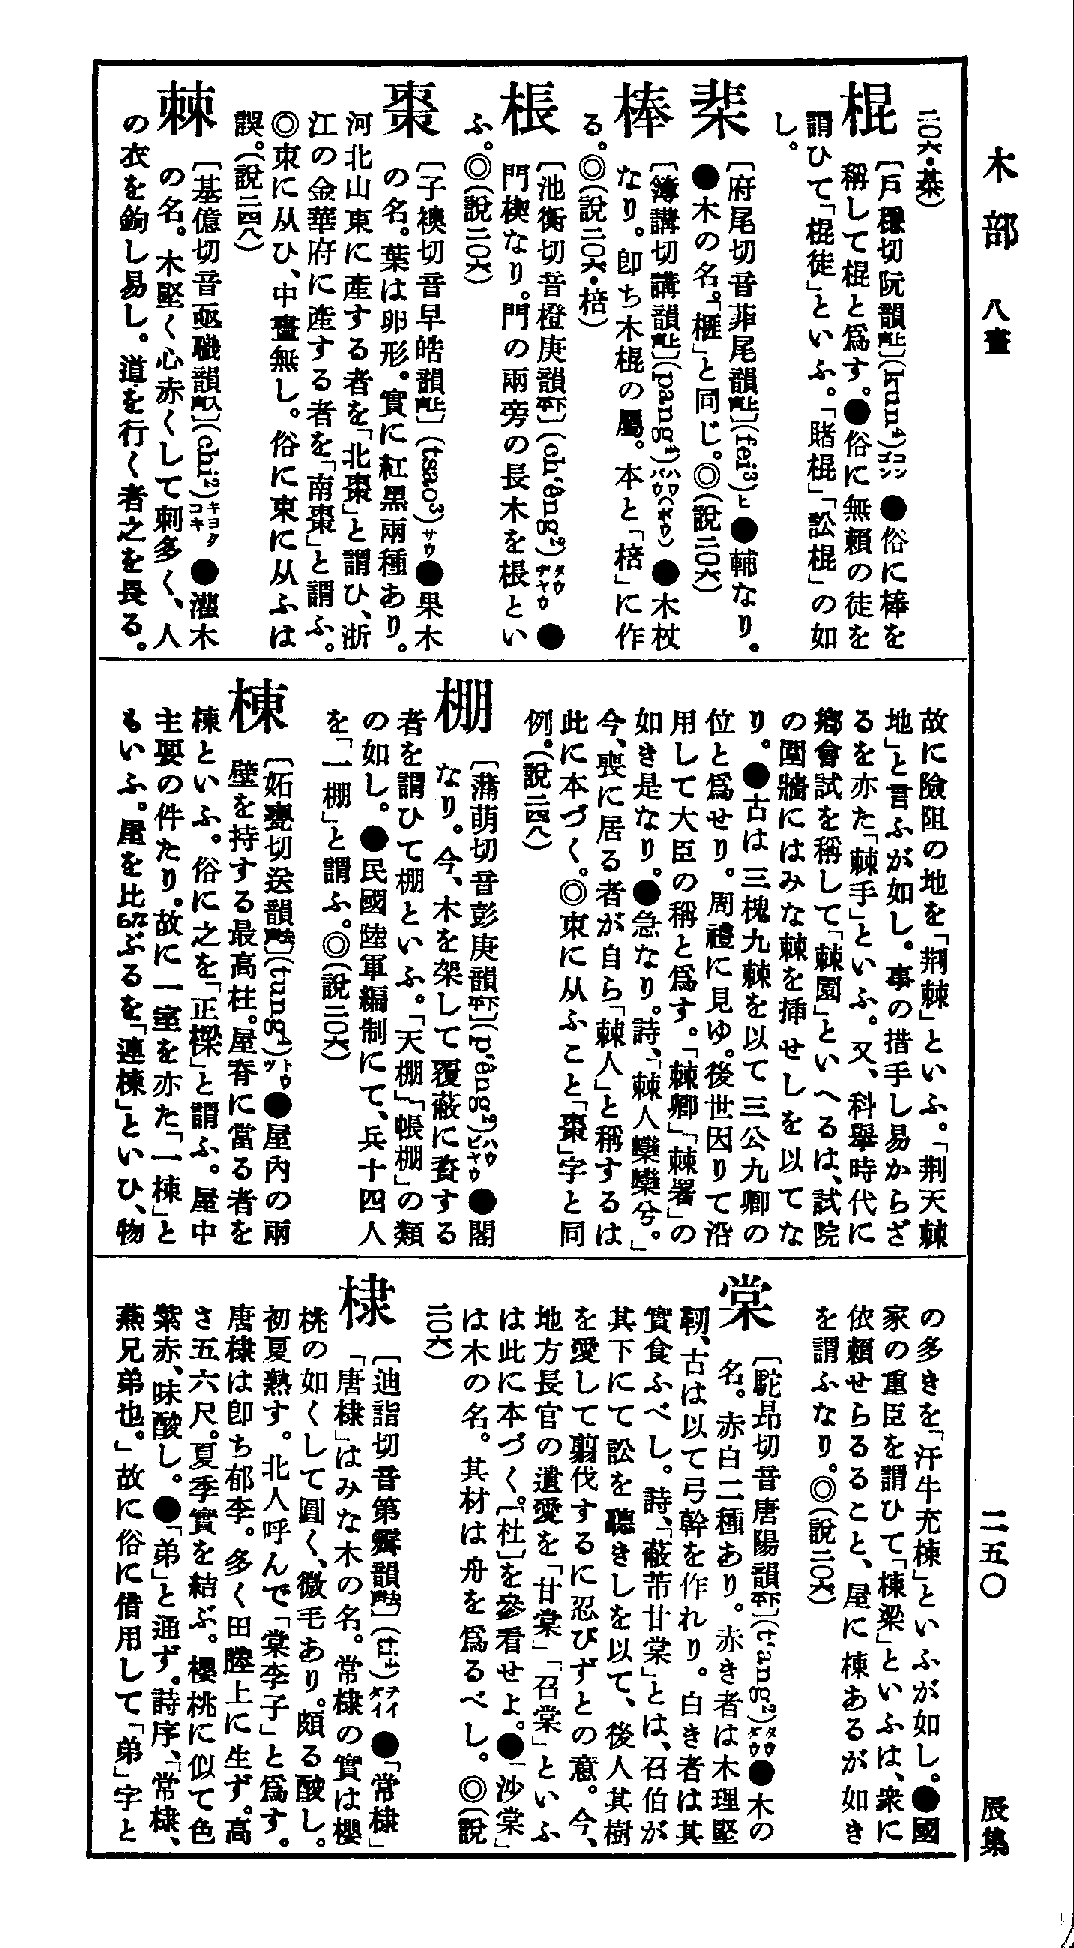 木部 八畫
二五〇
辰集
二〇六・棊)
棍
〔戶穩切阮韻上聲〕(kun⁴)コン ●俗に棒を
稱して棍と爲す。●俗に無賴の徒を
謂ひて「棍徒」といふ。「賭棍」「訟棍」の如
し。
棐
〔府尾切音菲尾韻上聲〕(fei³)ヒ●輔なり。
●木の名。「榧」と同じ。◎(說二〇六)
棒
〔簿講切講韻上聲〕(pang⁴)ハウ(ボウ)●木杖
なり。卽ち木棍の屬。本と「棓」に作
る。◎(說二〇六・棓)
棖
〔池衡切音橙庚韻下平〕(ch'êng²)タウ ヂャウ ●
門楔なり。門の兩旁の長木を棖とい
ふ。◎(說二〇六)
棗
〔子襖切音早皓韻上聲〕(tsao³)サウ●果木
の名。葉は卵形。實に紅黑兩種あり。
河北山東に產する者を「北棗」と謂ひ、浙
江の金華府に產する者を「南棗」と謂ふ。
◎朿に从ひ、中畫無し。俗に束に从ふは
誤。(說二四八)
棘
〔基億切音亟職韻入聲〕(chi²)キヨク コキ ●灌木
の名。木堅く心赤くして刺多く、人
の衣を鉤し易し。道を行く者之を長る。
故に險阻の地を「荆棘」といふ。「荆天棘
地」と言ふが如し。事の措手し易からざ
るを亦た「棘手」といふ。又、科擧時代に
鄕會試を稱して「棘圍」といへるは、試院
の圍牆にはみな棘を揷せしを以てな
り。●古は三槐九棘を以て三公九卿の
位と爲せり。周禮に見ゆ。後世因りて沿
用して大臣の稱と爲す。「棘卿」「棘署」の
如き是なり。●急なり。詩、「棘人欒欒兮。」
今、喪に居る者が自ら「棘人」と稱するは
此に本づく。◎朿に从ふこと「棗」字と同
例。(說二四八)
棚
〔蒲萌切音彭庚韻下平〕(p'êng²)ハウ ビヤウ ●閣
なり。今、木を架して覆蔽に資する
者を謂ひて棚といふ。「天棚」「帳棚」の類
の如し。●民國陸軍編制にて、兵十四人
を「一棚」と謂ふ。◎(說二〇六)
棟
〔妬甕切送韻去聲〕(tung⁴)トウ ツ ●屋內の兩
壁を持する最高柱。屋脊に當る者を
棟といふ。俗に之を「正樑」と謂ふ。屋中
主要の件たり。故に一室を亦た「一棟」と
もいふ。屋を比ぶるを「連棟」といひ、物
の多きを「汗牛充棟」といふが如し。●國
家の重臣を謂ひて「棟梁」といふは、衆に
依賴せらるること、屋に棟あるが如き
を謂ふなり。◎(說二〇六)
棠
〔駝昂切音唐陽韻下平〕(t'ang²)タウ ダウ●木の
名。赤白二種あり。赤き者は木理堅
韌、古は以て弓幹を作れり。白き者は其
實食ふべし。詩、「蔽芾甘棠」とは、召伯が
其下にて訟を聽きしを以て、後人其樹
を愛して剪伐するに忍びずとの意。今、
地方長官の遺愛を「甘棠」「召棠」といふ
は此に本づく。〔杜〕を參看せよ。●「沙棠」
は木の名。其材は舟を爲るべし。◎(說
二〇六)
棣
〔迪詣切音第霽韻去聲〕(ti⁴)テイ ダイ ●「常棣」
「唐棣」はみな木の名。常棣の實は櫻
桃の如くして圓く、微毛あり。頗る酸し。
初夏熟す。北人呼んで「棠李子」と爲す。
唐棣は卽ち郁李。多く田塍上に生ず。高
さ五六尺。夏季實を結ぶ。櫻桃に似て色
紫赤、味酸し。●「弟」と通ず。詩序、「常棣、
燕兄弟也。」故に俗に借用して「弟」字と